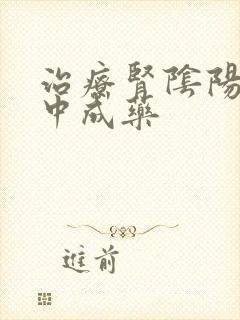 治療腎陰陽
中成藥
進前